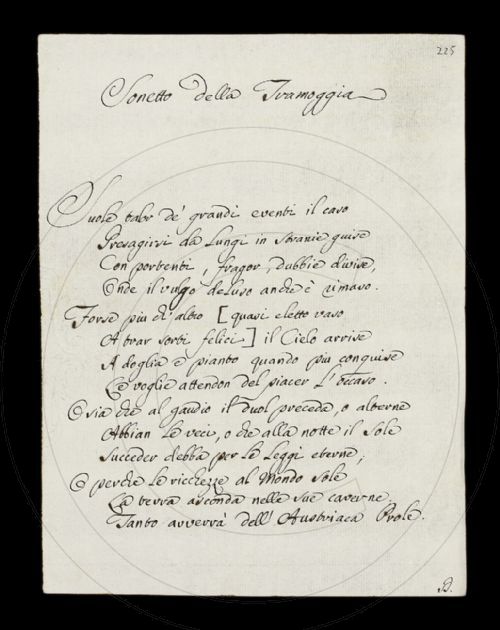 225
Sonetto della Tramoggia
Suole talor de' grandi eventi il caso
Presagirsi da lungi in stranie guise
Con portenti, fragor, dubbie divise,
Onde il vulgo deluso anche è rimaso.
Forse piu ch' altro [quasi eletto vaso
A trar sorti felici] il Cielo arrise
A doglia e pianto quando piu conquise
Le voglie attendon del piacer l' occaso.
O sia che al gaudio il duol preceda, o alterne
Abbian le veci, o che alla notte il Sole
Succeder debba per le leggi eterne;
O perche le ricchezze al Mondo sole
La terra asconda nelle sue caverne,
Tanto avverrà dell' Austriaca Prole.